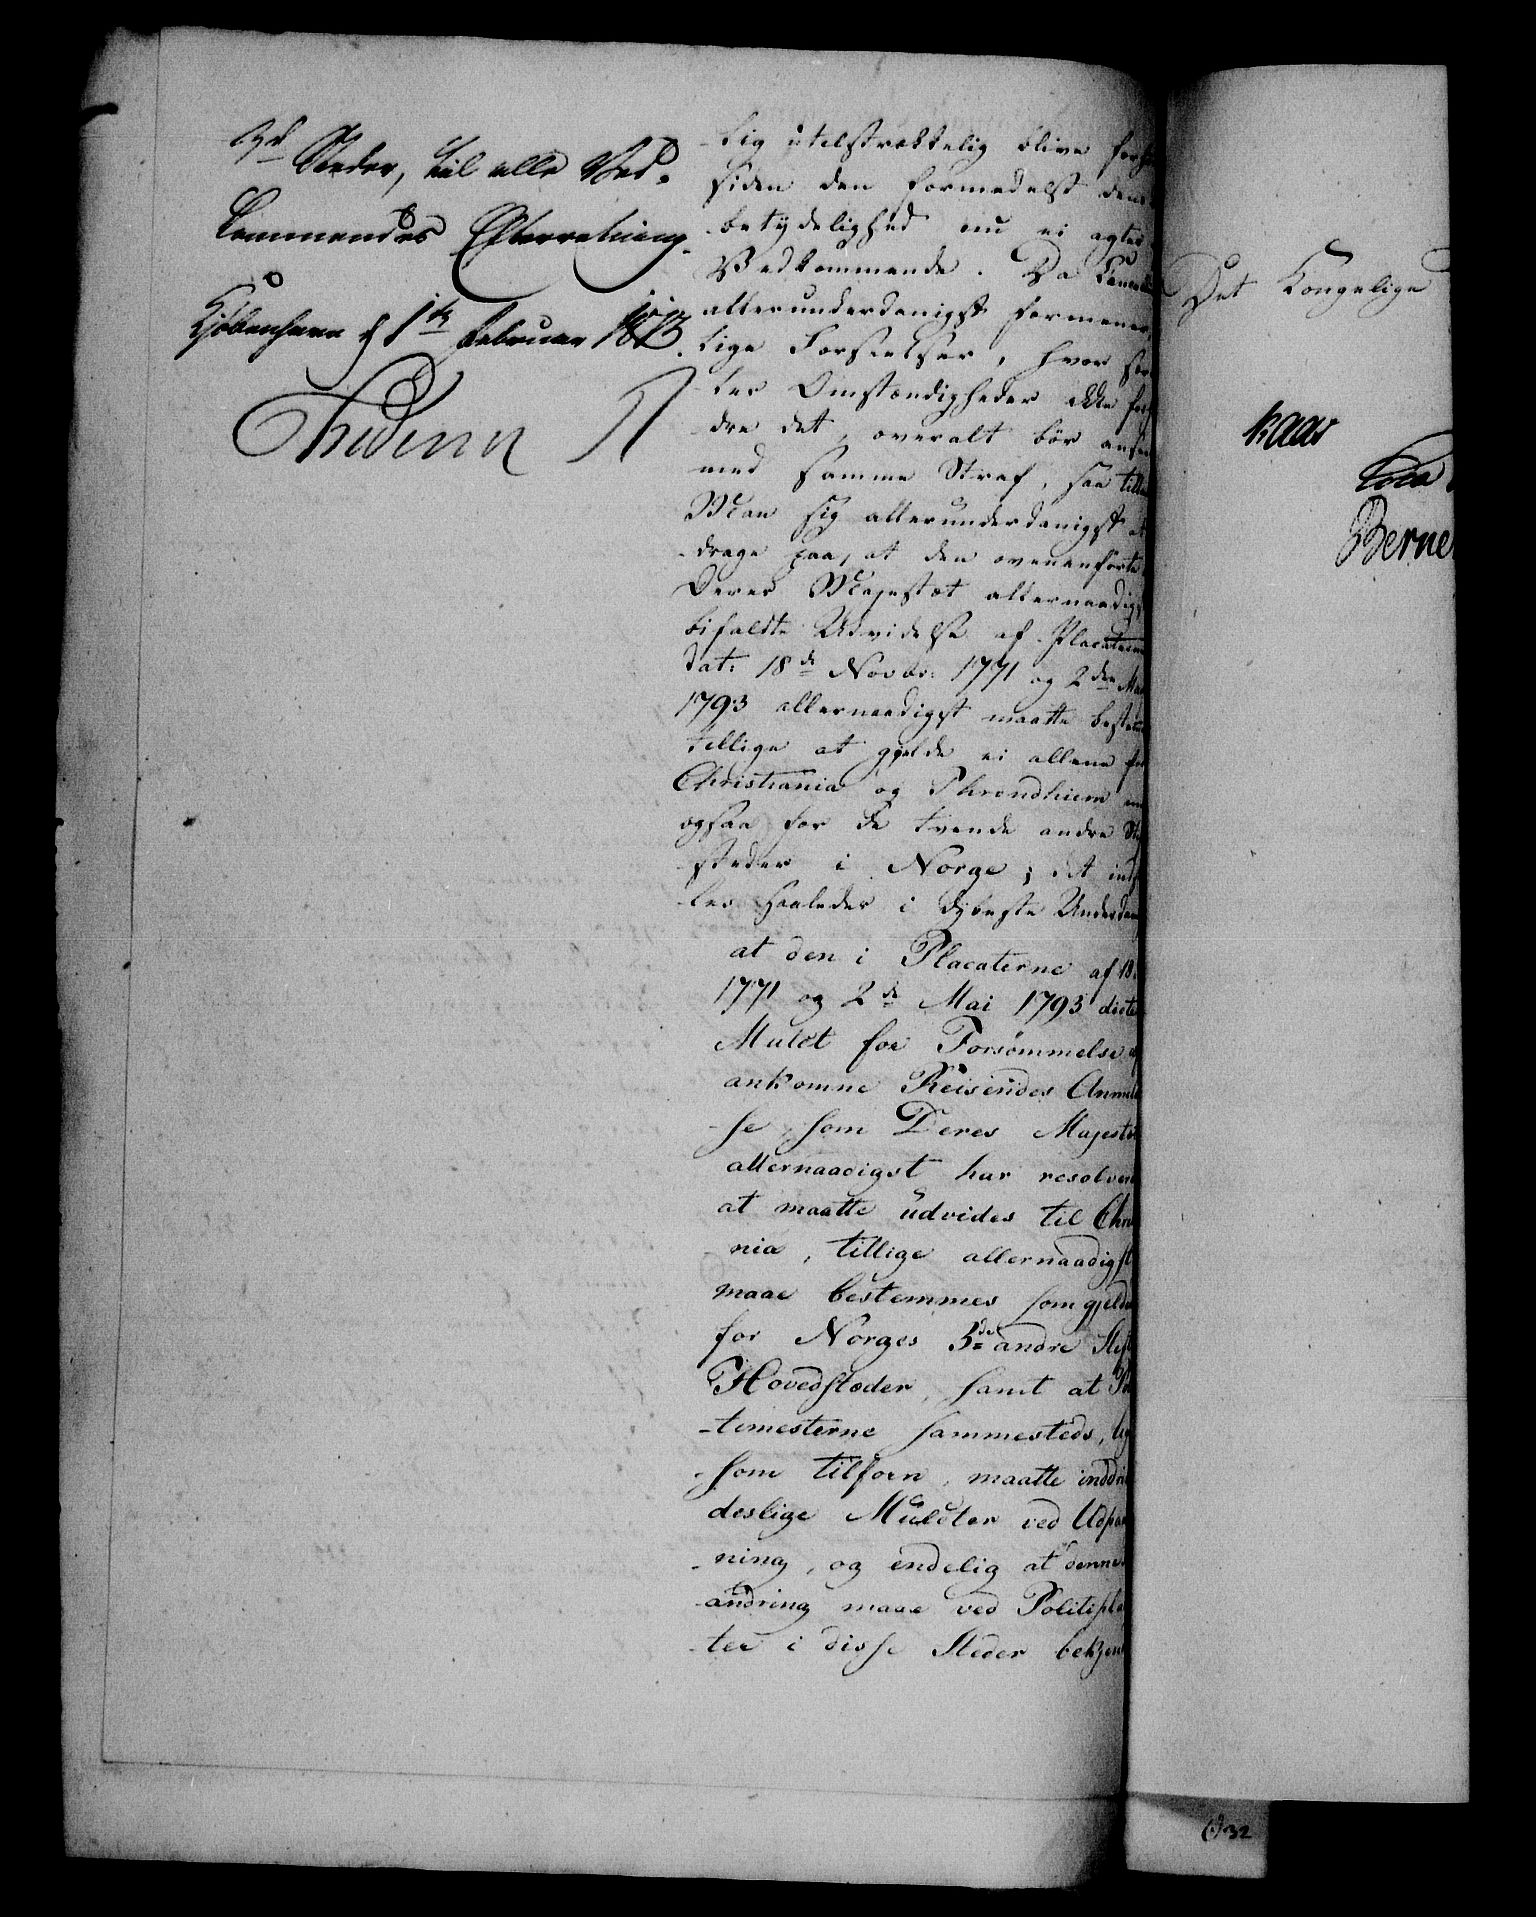 3de Steder, til alle Ved-
kommendes Efterretning.
Kjøbenhavn d 1te Februar 1813.
Frederik R
-lig utilstrækkelig blive for
siden den formedelst dens
-betydelighed nu ei agtes
Vedkommende. Da Cancell
allerunderdanigst formener,
lige Forseelser, hvor sær
-les Omstændigheder ikke for
-dre det, overalt bør ansees
med samme Straf, saa tilla
Man sig allerunderdanigst at
-drage paa, at den ovenanførte
Deres Majestæt allernaadigst
bifaldte Udvidelse af Placaterne
dat: 18de Novbr: 1771 og 2den Mai
1793 allernaadigst maatte bestem
tillige at gjelde ei allene for
Christiania og Throndhiem men
ogsaa for de tvende andre Sti
-steder i Norge; det ind
-les saaledes i dybeste Underdan
at den i Placaterne af 18.
1771 og 2de Mai 1793 dicte
Mulct for Forsømmelse af
ankomne Reisendes Anmel
-se som Deres Majestæt
allernaadigst har resolveret
at maatte udvides til Chri
nia, tillige allernaadigst
maae bestemmes som gjelde
for Norges 3de andre Stift
Hovedstæder, samt at Po
-timesterne sammesteds, lig
-som tilforn, maatte inddri
deslige Mulcter ved Udpan
-ning, og endelig at denne
-andring maae ved Politipla
-ter i disse Steder bekjen
Det Kongelige
Kaas
Berne
32